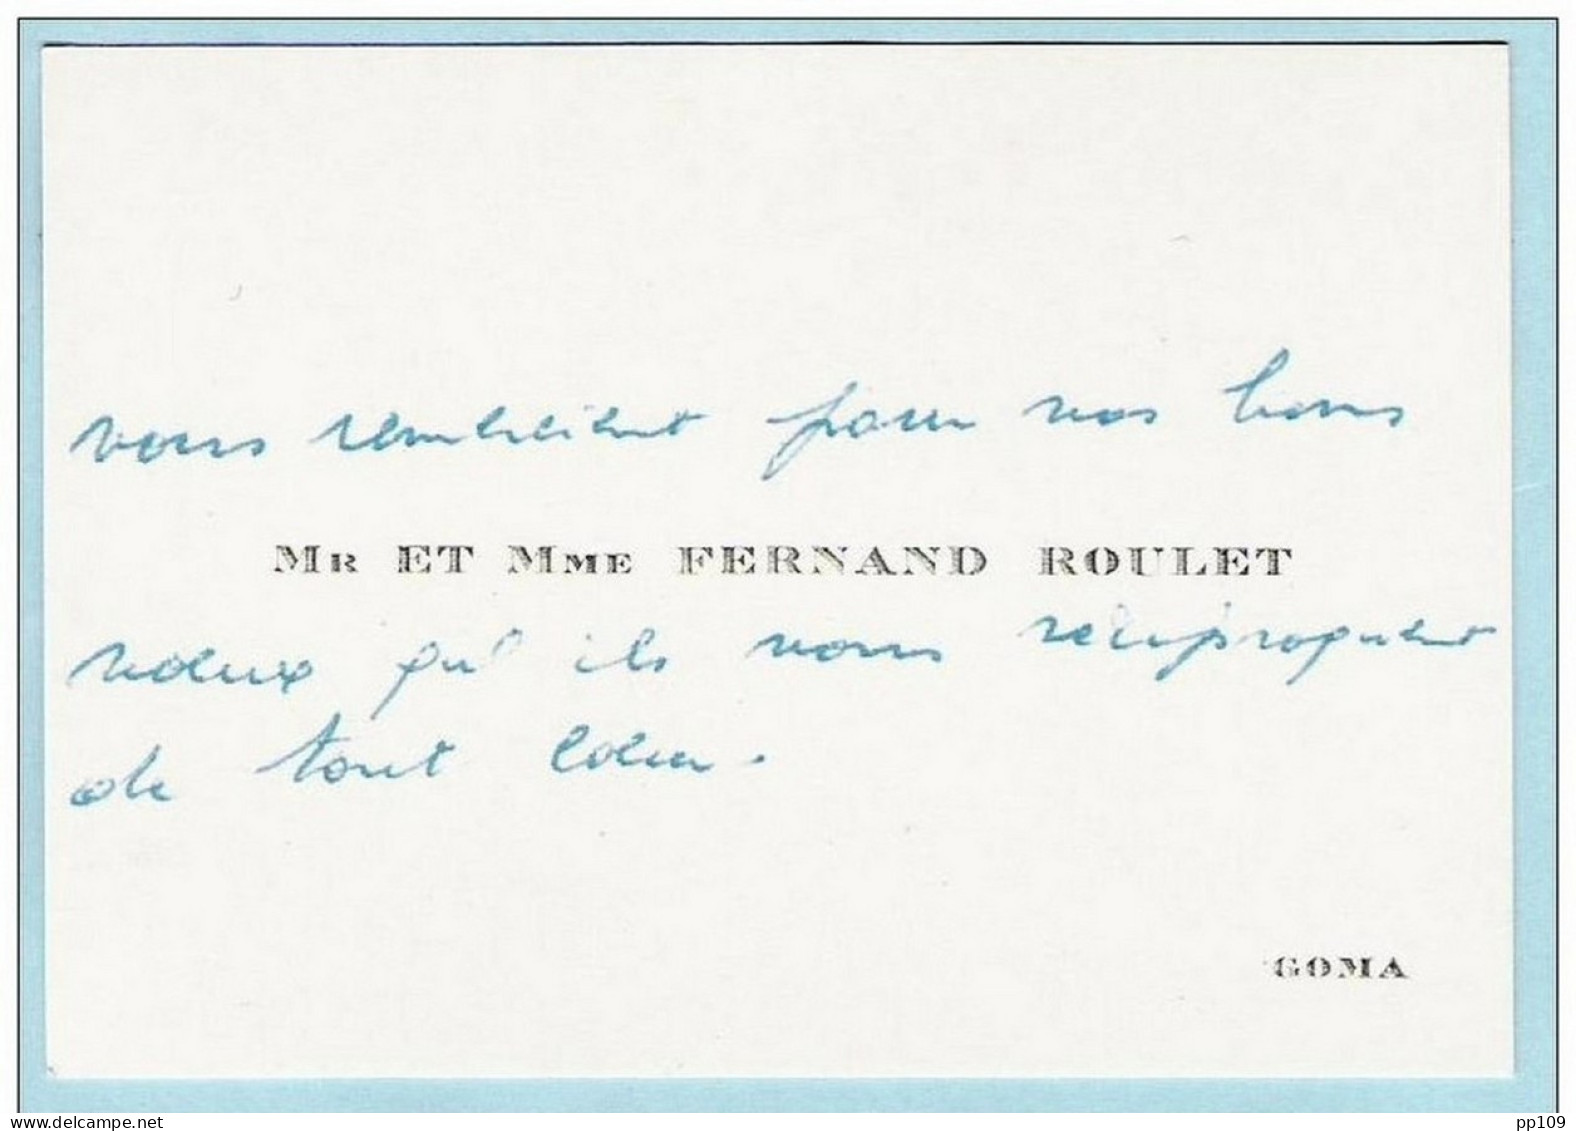 vous remercient pour vos bons
MR ET MME FERNAND ROULET
voeux qu'ils vous réciproquent
de tout coeur.
GOMA
www.delcampe.net
pp109